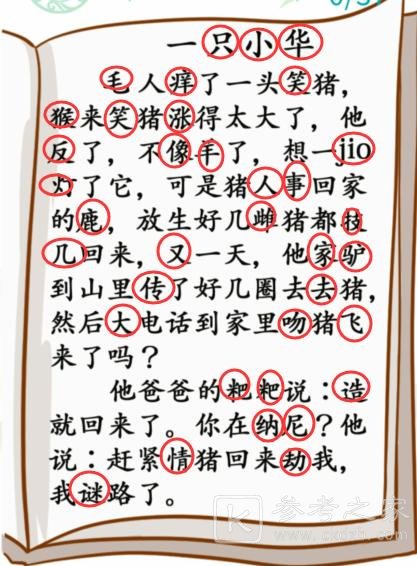 一只小华
毛人痒了一头笑猪，
猴来笑猪涨得太大了，他
反了，不像手了，想一jio
灯了它，可是猪人事回家
的鹿，放生好几雌猪都技
几回来，又一天，他家驴
到山里传了好几圈去去猪，
然后大电话到家里吻猪飞
来了吗？
他爸爸的粑粑说：造
就回来了。你在纳尼？他
说：赶紧情猪回来劫我，
我谜路了。
K 参考之家
www.ckdzb.com